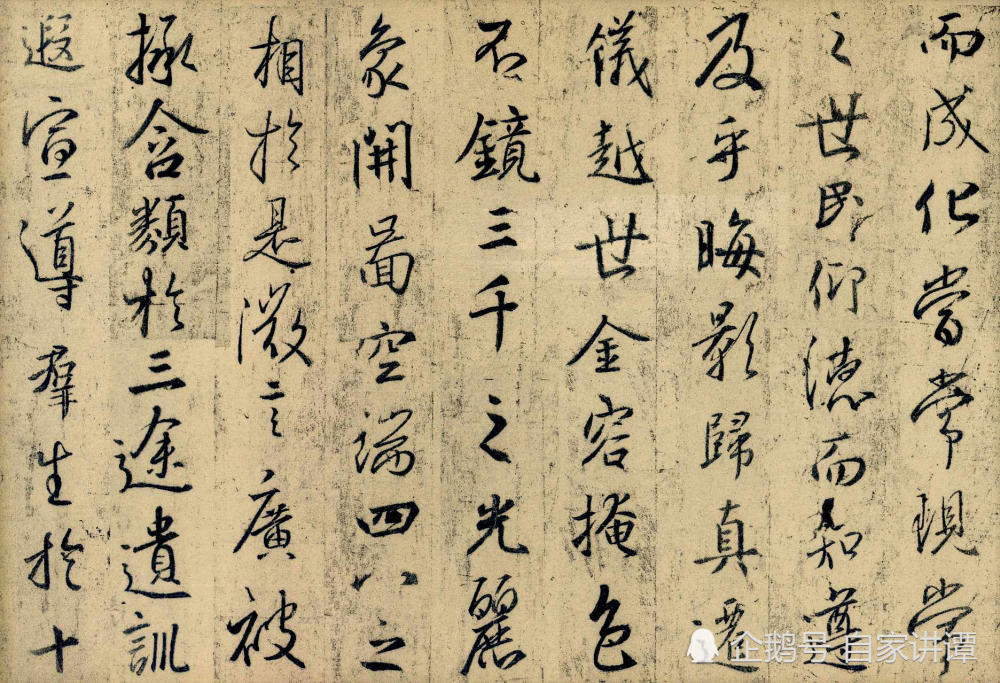 而成化當常現常
之世民仰德而知遵
及乎晦影歸真遷
儀越世金容掩色
不鏡三千之光麗
象開圖空端四八之
相於是微言廣被
拯含類於三途遺訓
遐宣導羣生於十
企鹅号 自家讲谭